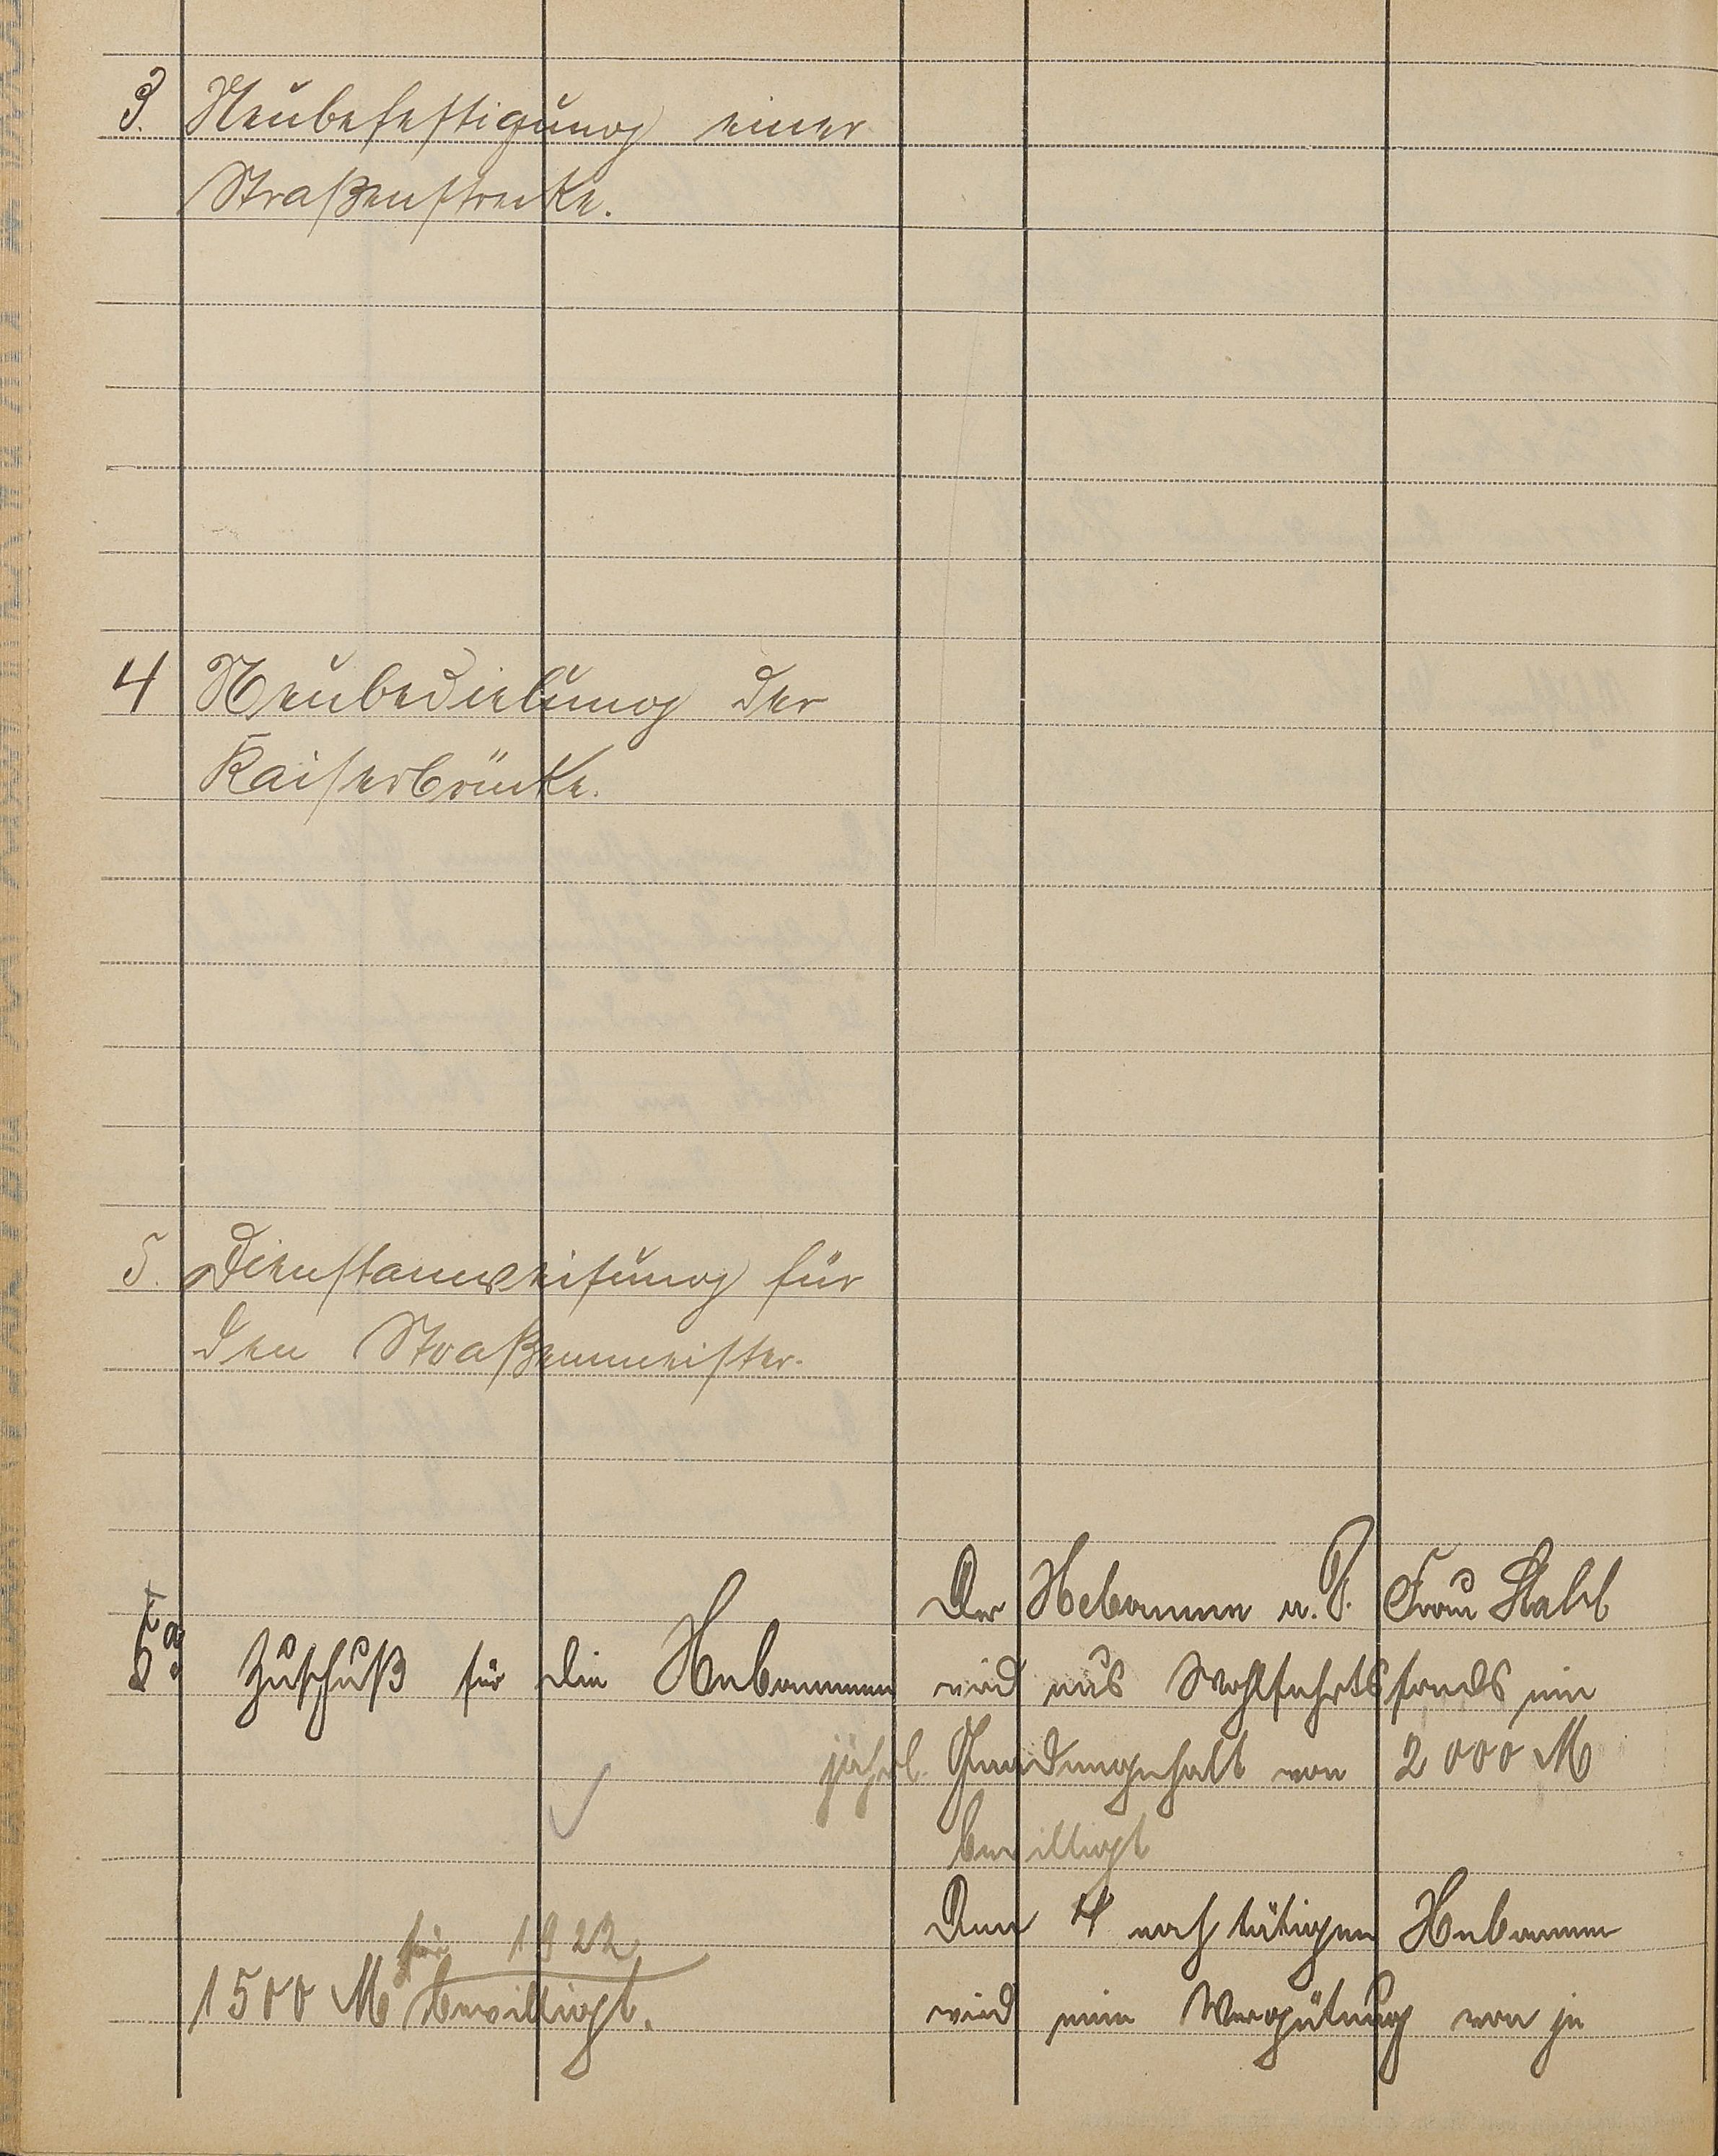 3. Neubefestigung einer
Straßenstrecke.
4 Neubedielung der
Kaiserbrücke.
5. Dienstanweisung für
den Straßenmeister.
5a. Zuschuß für die Hebammen
Der Hebamme a. D. Frau Stahl
wird aus Wohlfahrtsfonds ein
jährl. Gnadengehalt von 2000 M
bewilligt
Den 4 noch tätigen Hebammen
wird eine Vergütung von je
für 1922
1500 M bewilligt.